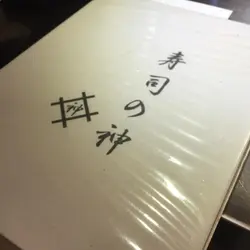 寿司の神